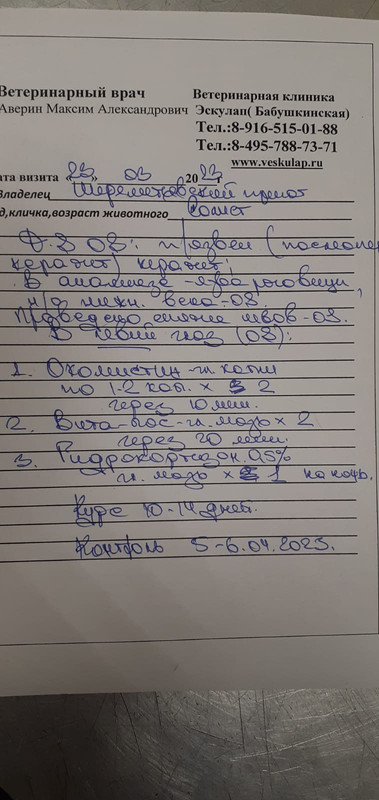 Ветеринарный врач
Аверин Максим Александрович
Ветеринарная клиника
Эскулап( Бабушкинская)
Тел.:8-916-515-01-88
Тел.:8-495-788-73-71
www.veskulap.ru
ата визита «23» 03 2023
Владелец Шереметьевский приют
д,кличка,возраст животного Comet
Д-З OS: п/язвен (послеопер
кератит) кератит;
В анамнезе - язва роговицы,
н/о нижн. века - OS.
Проведено снятие швов - OS.
В левый глаз (OS):
1. Окомистин - гл. капли
по 1-2 кап. х 2
через 10 мин.
2. Вита-Пос - гл. мазь х 2
через 20 мин.
3. Гидрокортизон 0,5%
гл. мазь х 1 на ночь.
Курс 10-14 дней.
Контроль 5-6.04.2023.